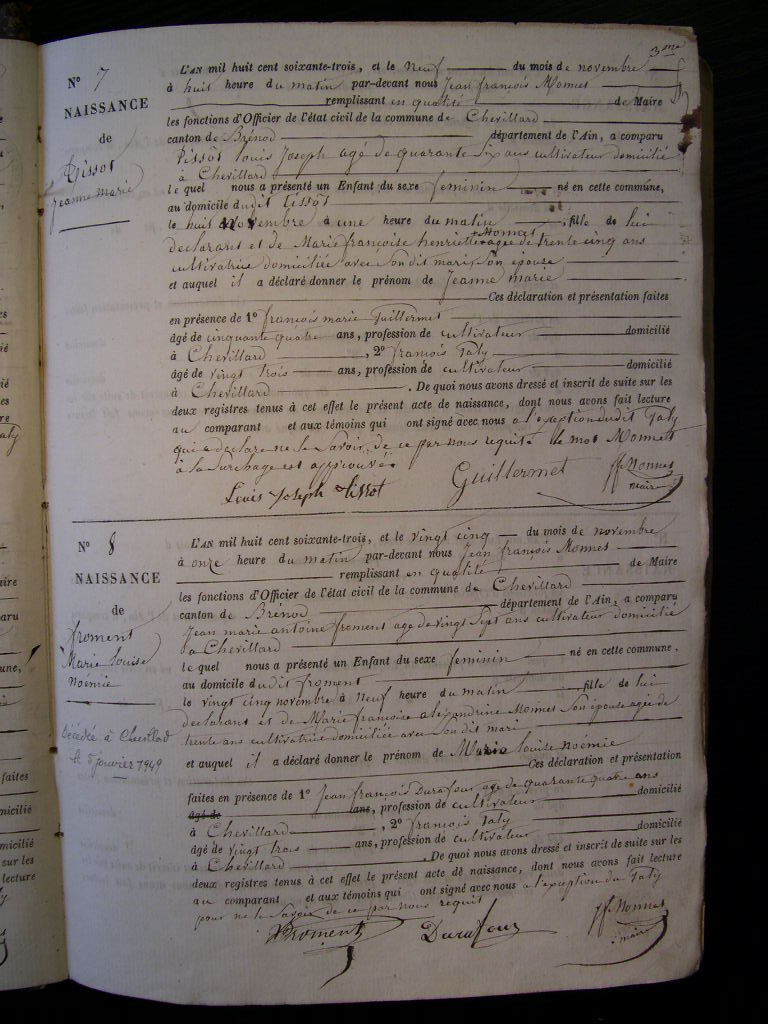 3me
N° 7
NAISSANCE
de
Tissot
Jeanne marie
L'AN mil huit cent soixante-trois, et le Neuf du mois de novembre
à huit heure du matin par-devant nous Jean françois Monnet
remplissant en qualité de Maire
les fonctions d'Officier de l'état civil de la commune de Chevillard
canton de Brénod département de l'Ain, a comparu
Tissot louis Joseph agé de quarante six ans cultivateur domicilié
à Chevillard
le quel nous a présenté un Enfant du sexe feminin né en cette commune,
au domicile dudit tissot
le huit Novembre à une heure du matin, fille de lui
+ Monnet
declarant et de Marie françoise henriette + agée de trente cinq ans
cultivatrice domiciliée avec son dit mari, son épouse
et auquel il a déclaré donner le prénom de Jeanne marie
Ces déclaration et présentation faites
en présence de 1° françois marie Guillermet
âgé de cinquante quatre ans, profession de cultivateur domicilié
à Chevillard, 2° françois Taly
âgé de vingt trois ans, profession de cultivateur domicilié
à Chevillard. De quoi nous avons dressé et inscrit de suite sur les
deux registres tenus à cet effet le présent acte de naissance, dont nous avons fait lecture
au comparant et aux témoins qui ont signé avec nous a l'exception dudit Taly
qui a declaré ne le savoir, de ce par nous requis. le mot Monnet
à la surchage est approuvé.
Louis Joseph tissot Guillermet jf Monnet
maire
N° 8
NAISSANCE
de
froment
Marie louise
noémie
Décédée à Chevillard
le 5 janvier 1949
L'AN mil huit cent soixante-trois, et le vingt cinq du mois de novembre
à onze heure du matin par-devant nous Jean françois Monnet
remplissant en qualité de Maire
les fonctions d'Officier de l'état civil de la commune de Chevillard
canton de Brénod département de l'Ain, a comparu
Jean marie antoine froment agé de vingt sept ans cultivateur domicilié
à Chevillard
le quel nous a présenté un Enfant du sexe feminin né en cette commune,
au domicile dudit froment
le vingt cinq novembre à Neuf heure du matin fille de lui
declarant et de Marie françoise alexandrine Monnet son épouse agée de
trente ans cultivatrice domiciliée avec son dit mari
et auquel il a déclaré donner le prénom de Marie louise Noémie
Ces déclaration et présentation
faites en présence de 1° Jean françois Durafour age de quarante quatre ans
âgé de ans, profession de cultivateur domicilié
à Chevillard, 2° françois Taly
âgé de vingt trois ans, profession de cultivateur domicilié
à Chevillard. De quoi nous avons dressé et inscrit de suite sur les
deux registres tenus à cet effet le présent acte de naissance, dont nous avons fait lecture
au comparant et aux témoins qui ont signé avec nous a l'exception du Taly
pour ne le savoir de ce par nous requit
froment Durafour jf Monnet
maire